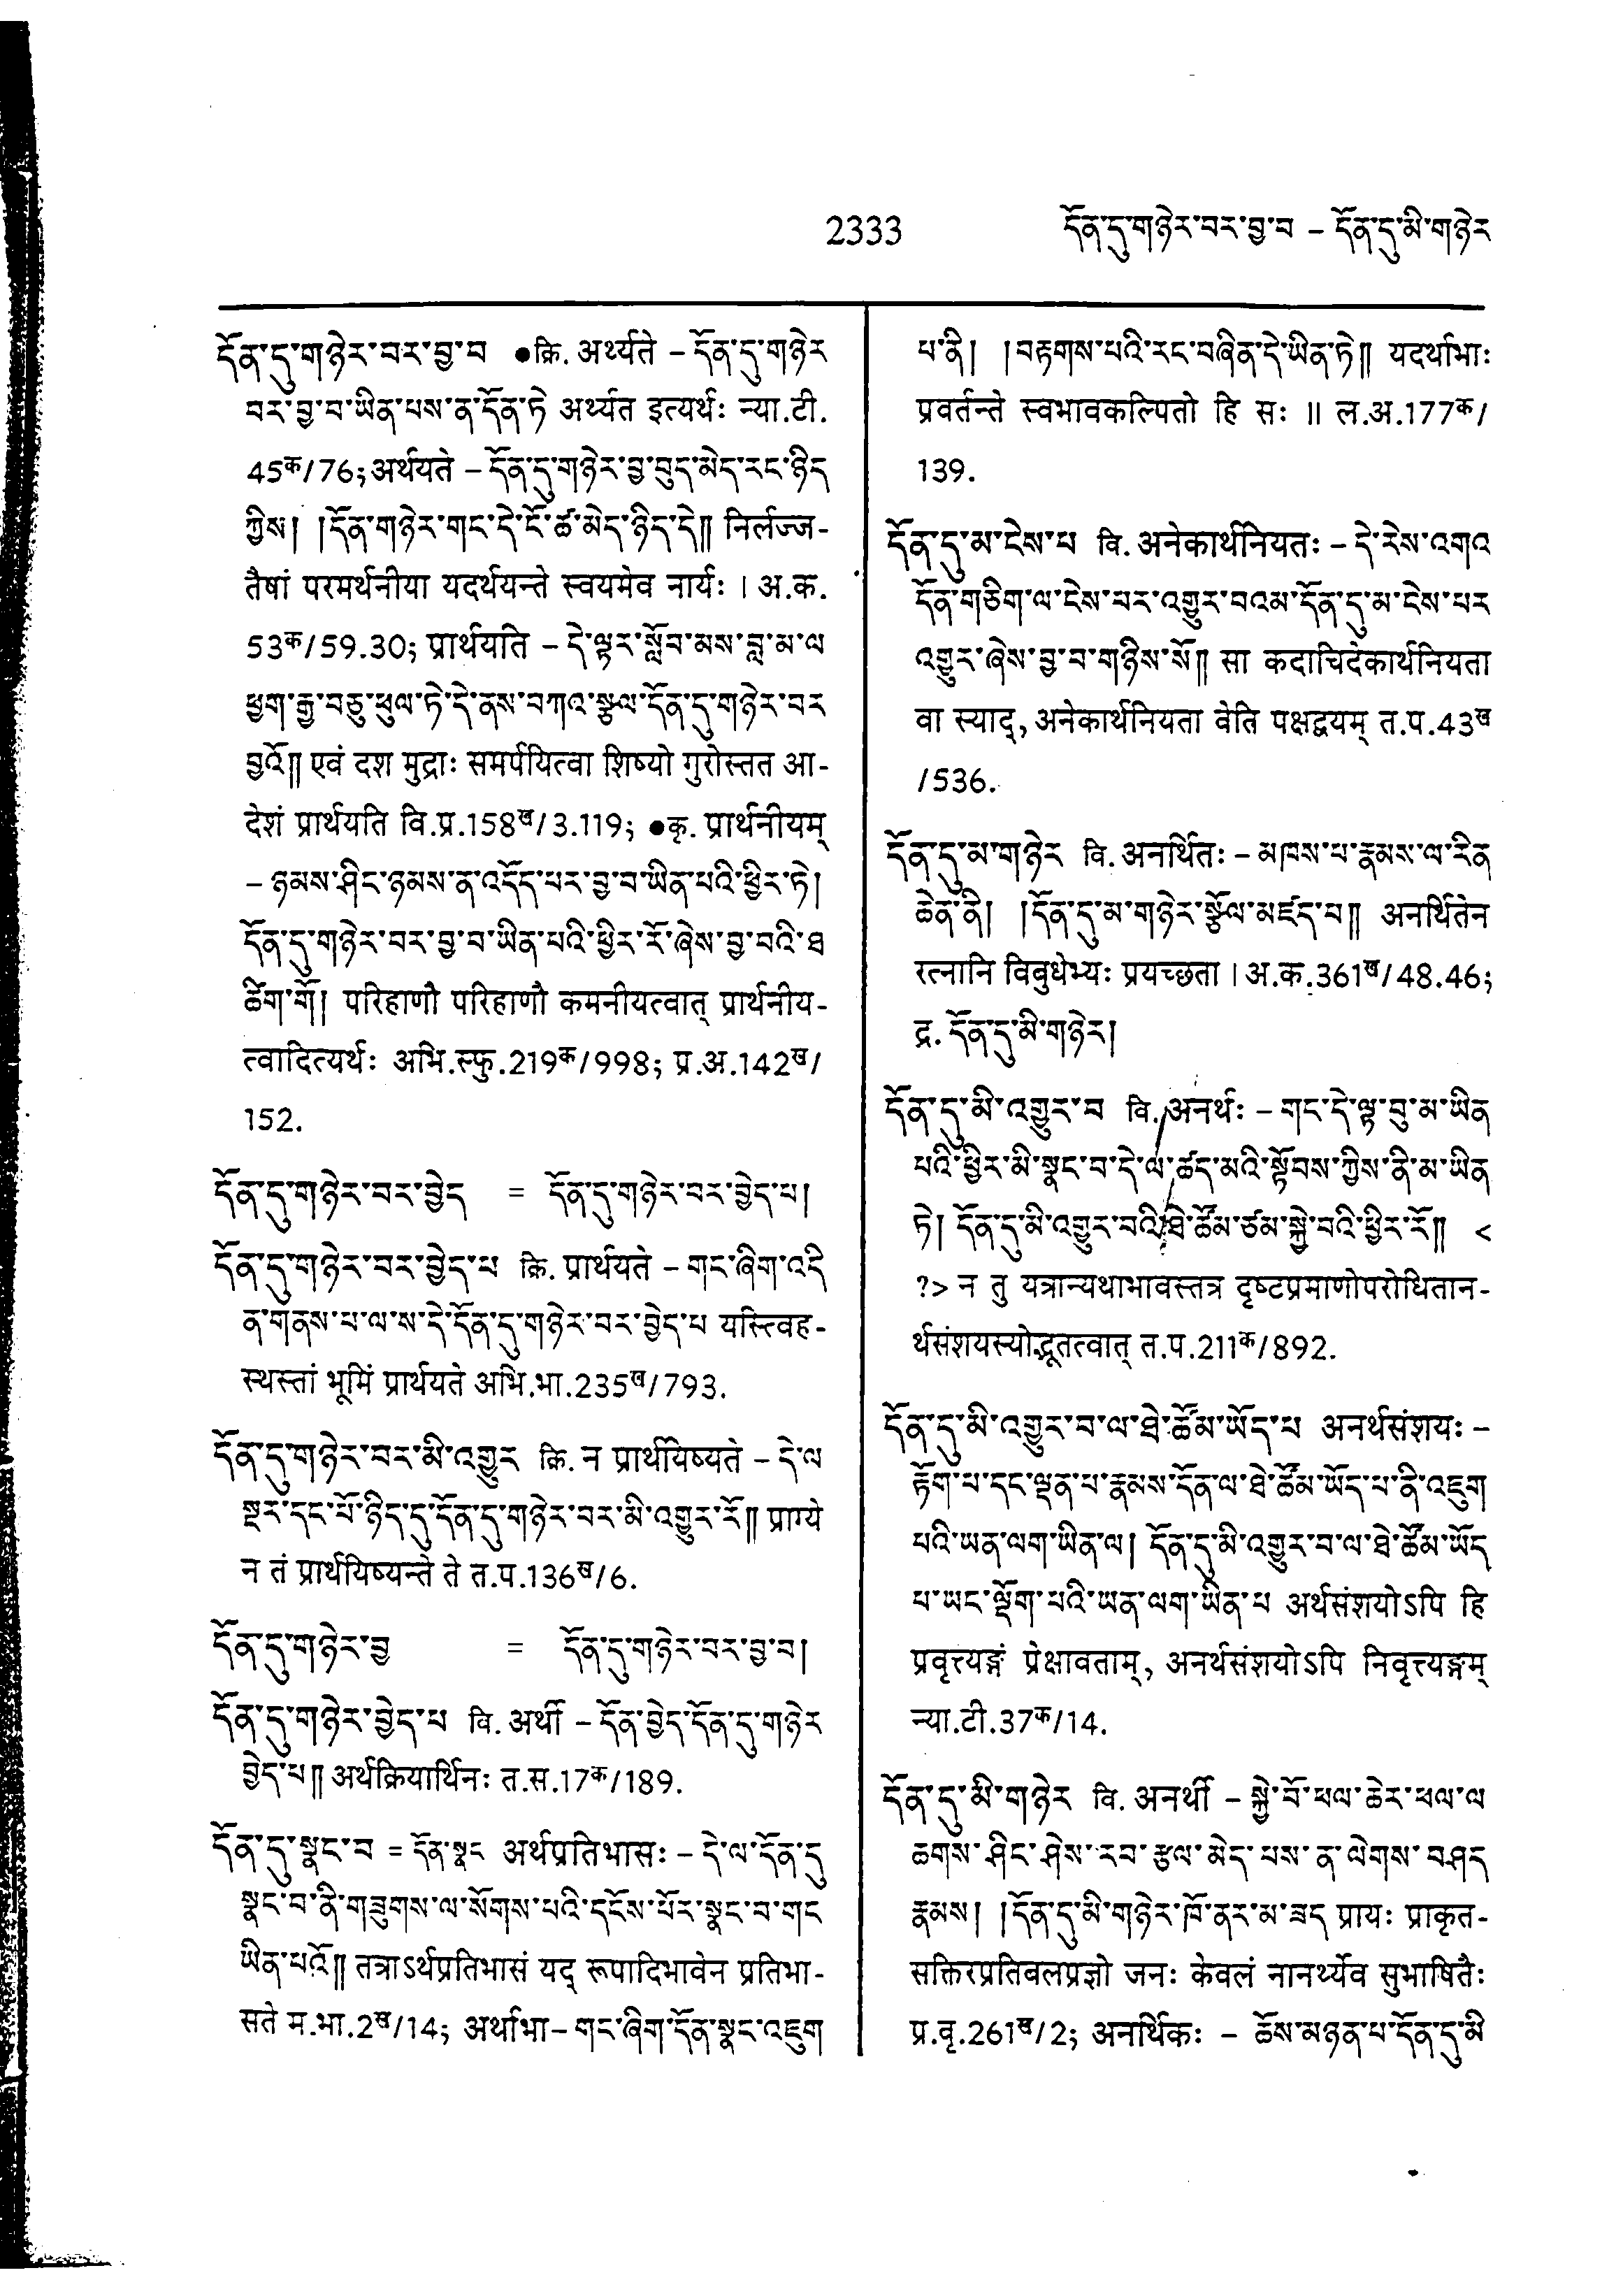 2333
དོན་དུ་གཉེར་བར་བྱ་བ – དོན་དུ་མི་གཉེར
དོན་དུ་གཉེར་བར་བྱ་བ ●क्रि. अर्थ्यते – དོན་དུ་གཉེར
བར་བྱ་བ་ཡིན་པས་ན་དོན་ཏེ अर्थ्यत इत्यर्थः न्या.टी.
45क/76; अर्थयते – དོན་དུ་གཉེར་བྱ་བུད་མེད་རང་ཉིད
ཀྱིས། །དོན་གཉེར་གང་དེ་ངོ་ཚ་མེད་ཉིད་དེ༎ निर्लज्ज-
तैषां परमर्थनीया यदर्थयन्ते स्वयमेव नार्यः । अ.क.
53क/59.30; प्रार्थयति – དེ་ལྟར་སློབ་མས་བླ་མ་ལ
ཕྱག་རྒྱ་བཅུ་ཕུལ་ཏེ་དེ་ནས་བཀའ་སྩལ་དོན་དུ་གཉེར་བར
བྱའོ༎ एवं दश मुद्राः समर्पयित्वा शिष्यो गुरोस्तत आ-
देशं प्रार्थयति वि.प्र.158ख/3.119; ●कृ. प्रार्थनीयम्
– ཉམས་ཤིང་ཉམས་ན་འདོད་པར་བྱ་བ་ཡིན་པའི་ཕྱིར་ཏེ།
དོན་དུ་གཉེར་བར་བྱ་བ་ཡིན་པའི་ཕྱིར་རོ་ཞེས་བྱ་བའི་ཐ
ཚིག་གོ། परिहाणौ परिहाणौ कमनीयत्वात् प्रार्थनीय-
त्वादित्यर्थः अभि.स्फु.219क/998; प्र.अ.142ख/
152.
དོན་དུ་གཉེར་བར་བྱེད = དོན་དུ་གཉེར་བར་བྱེད་པ།
དོན་དུ་གཉེར་བར་བྱེད་པ क्रि. प्रार्थयते – གང་ཞིག་འདི
ན་གནས་པ་ལ་ས་དེ་དོན་དུ་གཉེར་བར་བྱེད་པ यस्त्विह-
स्थस्तां भूमिं प्रार्थयते अभि.भा.235ख/793.
དོན་དུ་གཉེར་བར་མི་འགྱུར क्रि. न प्रार्थयिष्यते – དེ་ལ
སྔར་དང་པོ་ཉིད་དུ་དོན་དུ་གཉེར་བར་མི་འགྱུར་རོ༎ प्राग्ये
न तं प्रार्थयिष्यन्ते ते त.प.136ख/6.
དོན་དུ་གཉེར་བྱ = དོན་དུ་གཉེར་བར་བྱ་བ།
དོན་དུ་གཉེར་བྱེད་པ वि. अर्थी – དོན་བྱེད་དོན་དུ་གཉེར
བྱེད་པ༎ अर्थक्रियार्थिनः त.स.17क/189.
དོན་དུ་སྣང་བ = དོན་སྣང अर्थप्रतिभासः – དེ་ལ་དོན་དུ
སྣང་བ་ནི་གཟུགས་ལ་སོགས་པའི་དངོས་པོར་སྣང་བ་གང
ཡིན་པའོ༎ तत्राऽर्थप्रतिभासं यद् रूपादिभावेन प्रतिभा-
सते म.भा.2ख/14; अर्थाभा– གང་ཞིག་དོན་སྣང་འཇུག
པ་ནི། །བརྟགས་པའི་རང་བཞིན་དེ་ཡིན་ཏེ༎ यदर्थाभाः
प्रवर्तन्ते स्वभावकल्पितो हि सः ॥ ल.अ.177क/
139.
དོན་དུ་མ་ངེས་པ वि. अनेकार्थनियतः – དེ་རེས་འགའ
དོན་གཅིག་ལ་ངེས་བར་འགྱུར་བའམ་དོན་དུ་མ་ངེས་པར
འགྱུར་ཞེས་བྱ་བ་གཉིས་སོ༎ सा कदाचिदेकार्थनियता
वा स्याद्, अनेकार्थनियता वेति पक्षद्वयम् त.प.43ख
/536.
དོན་དུ་མ་གཉེར वि. अनर्थितः – མཁས་པ་རྣམས་ལ་རིན
ཆེན་ནི། །དོན་དུ་མ་གཉེར་སྩོལ་མཛད་པ༎ अनर्थितेन
रत्नानि विबुधेभ्यः प्रयच्छता । अ.क.361ख/48.46;
द्र. དོན་དུ་མི་གཉེར།
དོན་དུ་མི་འགྱུར་བ वि. अनर्थः – གང་དེ་ལྟ་བུ་མ་ཡིན
པའི་ཕྱིར་མི་སྣང་བ་དེ་ལ་ཚད་མའི་སྟོབས་ཀྱིས་ནི་མ་ཡིན
ཏེ། དོན་དུ་མི་འགྱུར་བའི་ཐེ་ཚོམ་ཙམ་སྐྱེ་བའི་ཕྱིར་རོ༎ <
?> न तु यत्रान्यथाभावस्तत्र दृष्टप्रमाणोपरोधितान-
र्थसंशयस्योद्भूतत्वात् त.प.211क/892.
དོན་དུ་མི་འགྱུར་བ་ལ་ཐེ་ཚོམ་ཡོད་པ अनर्थसंशयः –
རྟོག་པ་དང་ལྡན་པ་རྣམས་དོན་ལ་ཐེ་ཚོམ་ཡོད་པ་ནི་འཇུག
པའི་ཡན་ལག་ཡིན་ལ། དོན་དུ་མི་འགྱུར་བ་ལ་ཐེ་ཚོམ་ཡོད
པ་ཡང་ལྡོག་པའི་ཡན་ལག་ཡིན་པ अर्थसंशयोऽपि हि
प्रवृत्त्यङ्गं प्रेक्षावताम्, अनर्थसंशयोऽपि निवृत्त्यङ्गम्
न्या.टी.37क/14.
དོན་དུ་མི་གཉེར वि. अनर्थी – སྐྱེ་བོ་ཕལ་ཆེར་ཕལ་ལ
ཆགས་ཤིང་ཤེས་རབ་རྩལ་མེད་པས་ན་ལེགས་བཤད
རྣམས། །དོན་དུ་མི་གཉེར་ཁོ་ནར་མ་ཟད प्रायः प्राकृत-
सक्तिरप्रतिबलप्रज्ञो जनः केवलं नानर्थ्येव सुभाषितैः
प्र.वृ.261ख/2; अनर्थिकः – ཆོས་མཉན་པ་དོན་དུ་མི